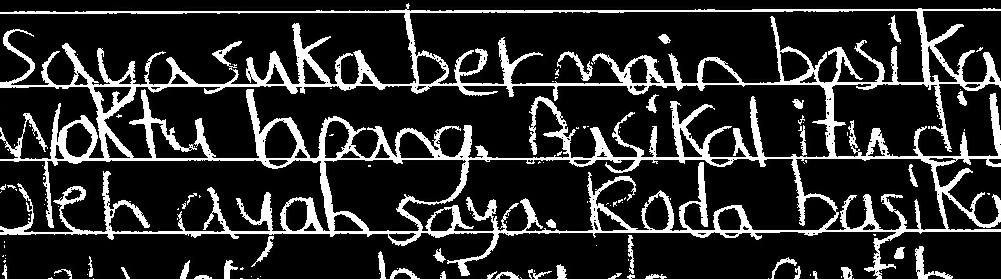 Saya suka bermain basika
Waktu lapang. Basikal itu dib
Oleh ayah saya. Roda basika